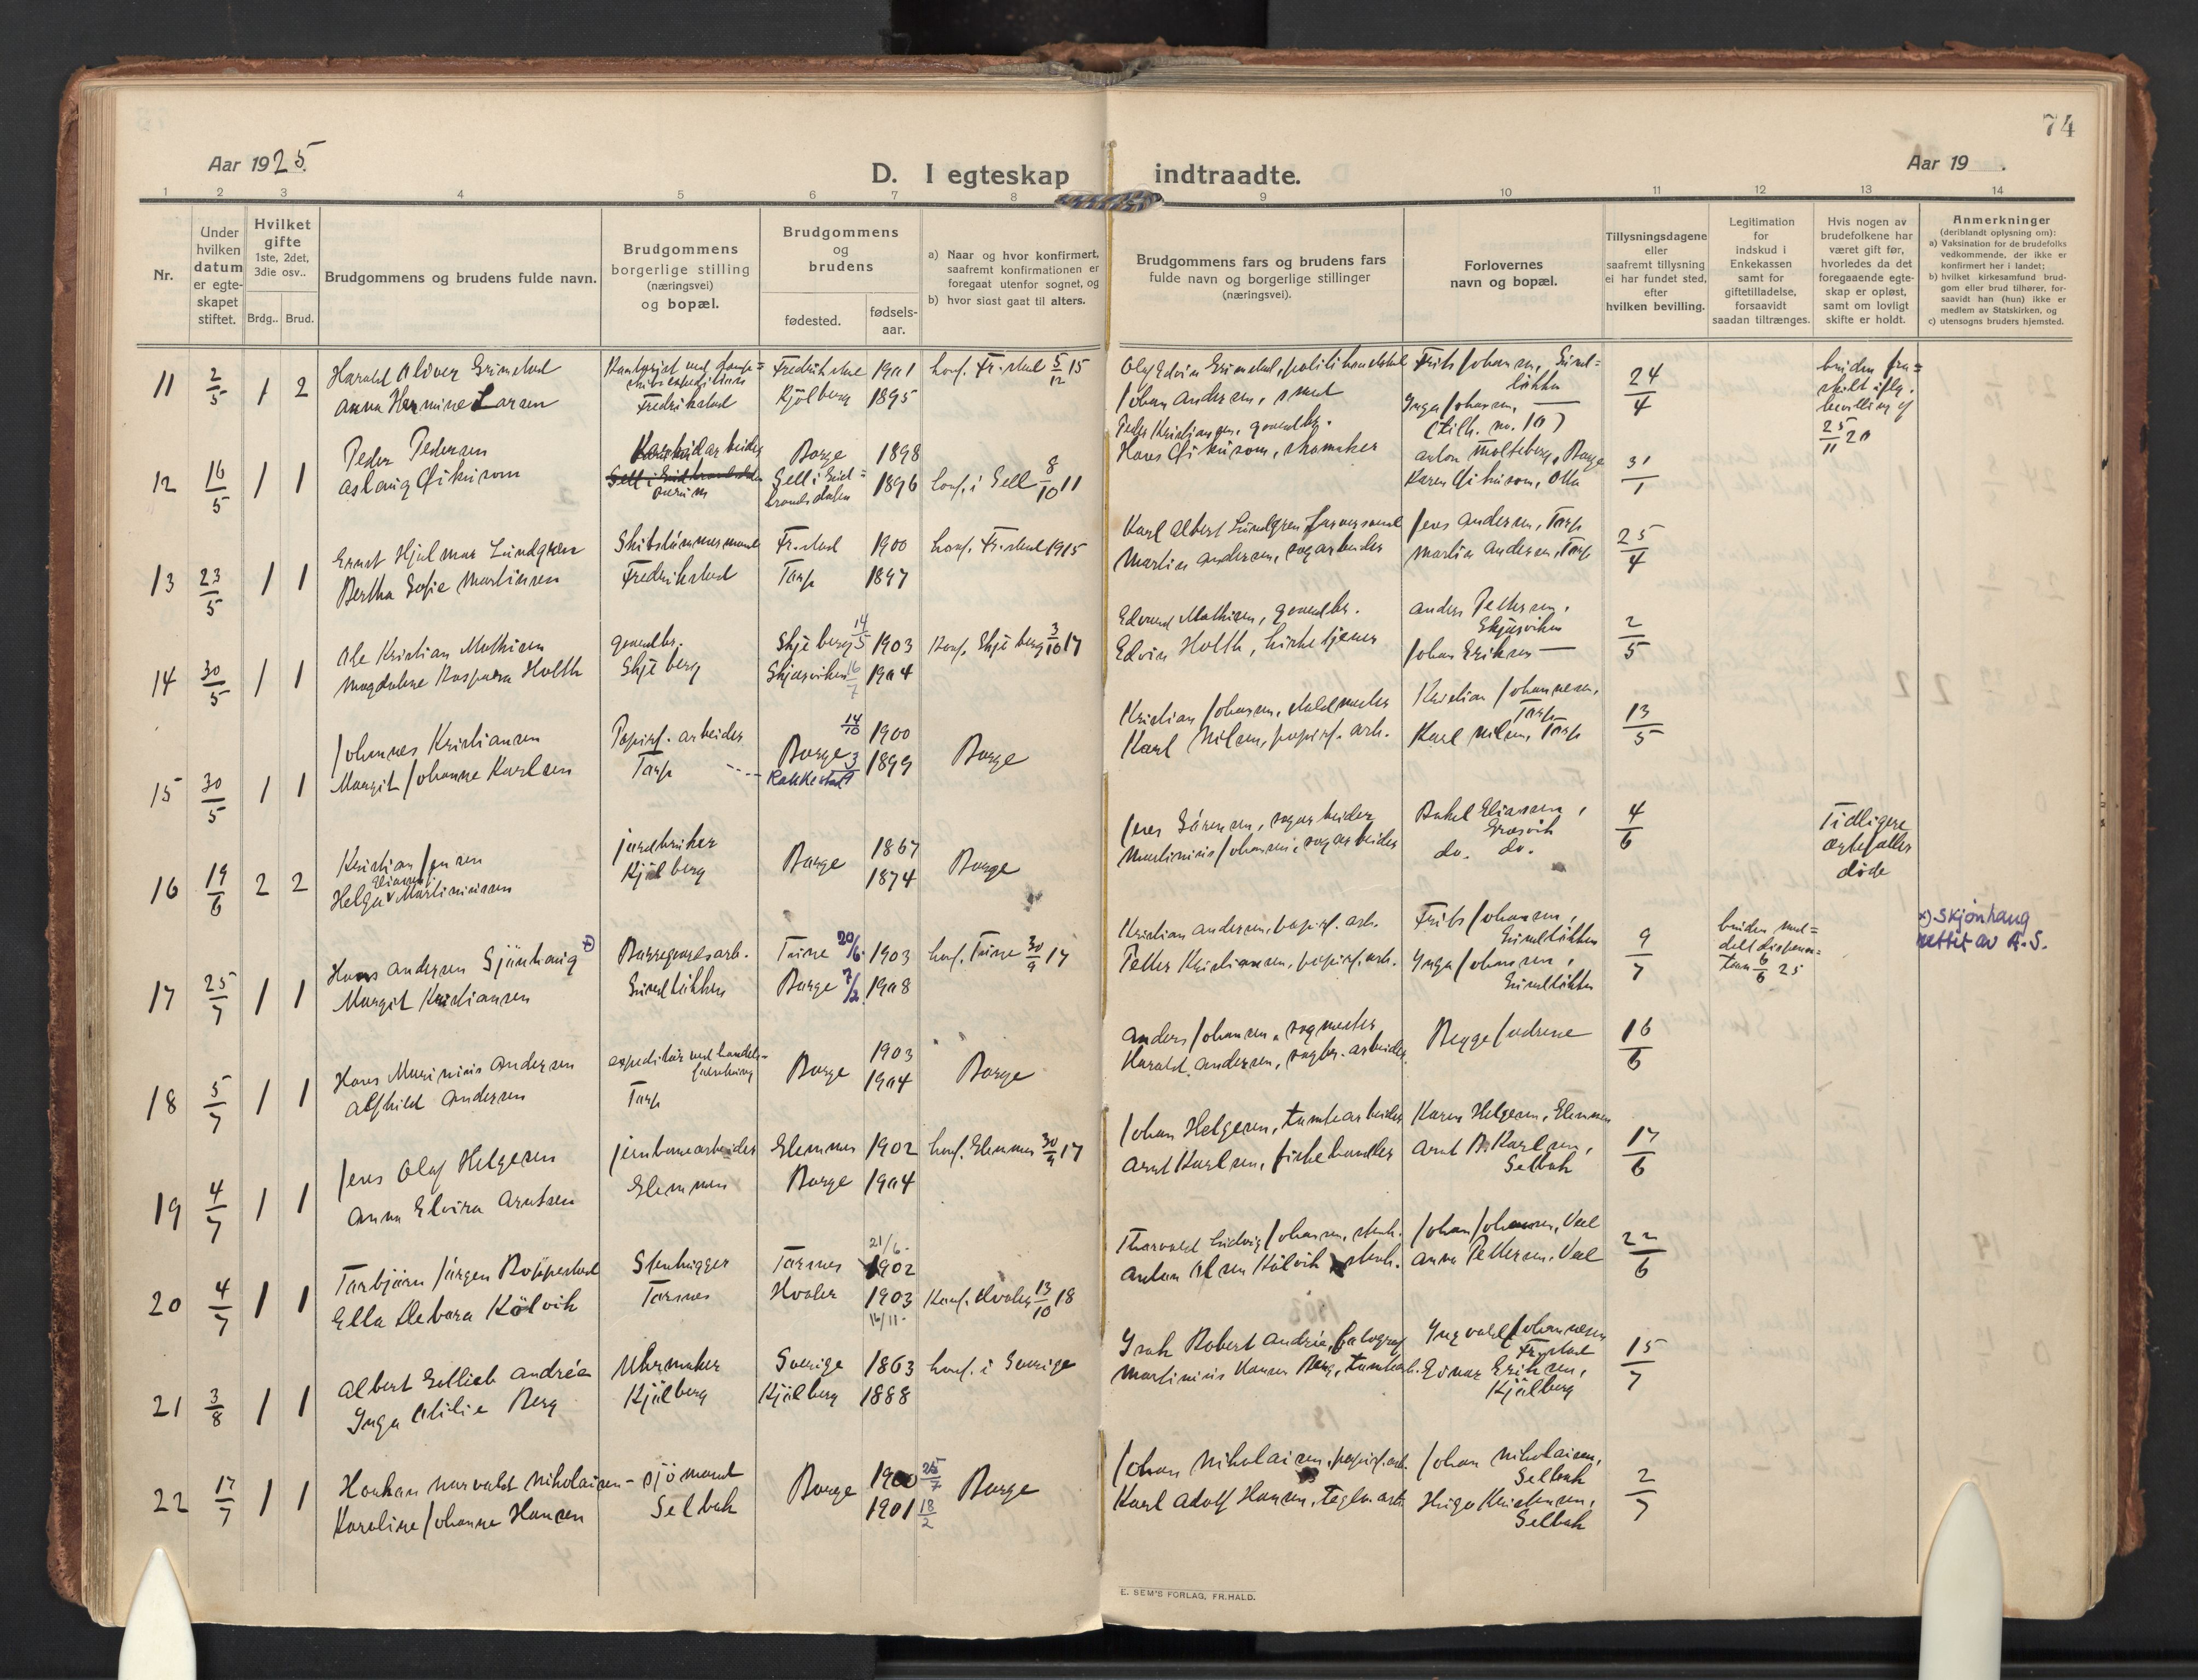 74
Aar 1925.
D. I egteskap indtraadte.
Aar 19 .
1 2 3 4 5 6 7 8 9 10 11 12 13 14
Nr.
Under hvilken datum er egteskapet stiftet.
Hvilket gifte 1ste, 2det, 3die osv..
Brdg.. Brud.
Brudgommens og brudens fulde navn.
Brudgommens borgerlige stilling (næringsvei) og bopæl.
Brudgommens og brudens
fødested.
fødsels-aar.
a) Naar og hvor konfirmert, saafremt konfirmationen er foregaat utenfor sognet, og
b) hvor sidst gaat til alters.
Brudgommens fars og brudens fars fulde navn og borgerlige stillinger (næringsvei).
Forlovernes navn og bopæl.
Tillysningsdagene eller saafremt tillysning ei har fundet sted, efter hvilken bevilling.
Legitimation for indskud i Enkekassen samt for giftetilladelse, forsaavidt saadan tiltrænges.
Hvis nogen av brudefolkene har været gift før, hvorledes da det foregaaende egteskap er opløst, samt om lovligt skifte er holdt.
Anmerkninger (deriblandt oplysning om):
a) Vaksination for de brudefolks vedkommende, der ikke er konfirmert her i landet;
b) hvilket kirkesamfund brudgom eller brud tilhører, forsaavidt han (hun) ikke er medlem av Statskirken, og
c) utensogns bruders hjemsted.
11 2/5 1 2 Harald Oliver Grimstad
Fredrikstad 1901 konf. Fr.stad 5/12 15
Olaf Edvin Grimstad, politikonstabel Frits Johansen, Sund=
løkka 24/4
Anna Hermine Larsen Fredrikstad Kjølberg 1895
Johan Andersen, smed Ynga Johansen, —
bruden fra=
skilt iflg.
bevilling af
25/11 20
12 16/5 1 1 Peder Pedersen
Borge 1898
Peder Kristiansen, gaardbr. Anton Molteberg, Borge 31/1
Aslaug Øihusom
Sell i Gud=
brandsdalen 1896 konf. i Sell 8/10 11
Hans Øihusom, skomaker Karen Øihusom, Otta
13 23/5 1 1 Ernst Hjalmar Lundgren Skibstømmermand Fr.stad 1900 konf. Fr.stad 1915
Karl Albert Lundgren, Jens Andersen, Torp 25/4
Bertha Sofie Martinsen Fredrikstad Torp 1897
Martin Andersen, sagarbeider Martin Andersen, Torp
14 30/5 1 1 Ole Kristian Mathisen gaardbr. Skjeberg 14/5 1903 Konf. Skjeberg 3/10 17
Edvard Mathisen, gaardbr. Anders Pettersen,
Skjærviken 2/5
Magdalene Kaspara Holth Skjeberg Skjærviken 16/7 1904
Edvin Holth, kirketjener Johan Eriksen —
15 30/5 1 1 Johannes Kristiansen Papirf. arbeider 14/10 1900
Borge Borge
Kristian Johansen, Kristian Johannesen,
Torp 13/5
Margit Johanne Karlsen Torp ---- Rakkestad 3/9 1899
Karl Nilsen, papirf. arb. Karl Nilsen, Torp
16 19/6 2 2 Kristian Jensen jordbruker Borge 1867 Borge
Jens Sørensen, sagarbeider Eliassen,
Græsvik 4/6
Helga Martiniussen Kjølberg 1874
Martinius Johansen, sagarbeider do. do.
Tidligere
ægtefæller
døde
17 25/7 1 1 Hans Andersen Sjønhaug x) Borregaardsarb. Tune 20/6 1903 konf. Tune 30/9 17
Kristian Andersen, papirf. arb. Frits Johansen,
Sundløkken 9/7
Margit Kristiansen Sundløkken Borge 7/2 1908
Petter Kristiansen, papirf. arb. Ynga Johansen,
Sundløkken
bruden med=
delt dispensa=
tion 6/6 25
x) Skjönhaug
rettet av A.S.
18 5/7 1 1 Hans Marinius Andersen expeditør ved handels=
forening Borge 1903 Borge
Anders Johansen, sagmester Begge fædrene 16/6
Alfhild Andersen Torp 1904
Harald Andersen, sagbr. arbeider
19 4/7 1 1 Jens Olaf Helgesen jernbanearbeider Glemmen 1902 konf. Glemmen 30/9 17
Johan Helgesen, tomtearbeider Karen Helgesen, Glemmen 17/6
Anna Elvira Arntsen Glemmen Borge 1904
Arnt Karlsen, fiskehandler Arnt B. Karlsen,
Selbak
20 4/7 1 1 Torbjørn Jørgen Roppestad Stenhugger Torsnes 21/6 1902
Thorvald Ludvig Johansen, stenh. Johan Johansen, Væl 22/6
Ella Debora Kølvik Torsnes Hvaler 1903 16/11 Konf. Hvaler 13/10 18
Anton Olsen Kølvik stenh. Anna Pettersen, Væl
21 3/8 1 1 Albert Gottlieb Andréa Uhrmaker Sverige 1863 konf. i Sverige
Isak Robert Andréa, fotograf Yngvald Johannesen
Fr.stad 15/7
Inga Otilie Berg Kjølberg Kjølberg 1888
Martinius Hansen Berg, tomtearb. Einar Eriksen,
Kjølberg
22 17/7 1 1 Haakan Norvald Nikolaisen - sjömand Borge 1900 25/7 Borge
Johan Nikolaisen, papirf. arb. Johan Nikolaisen,
Selbak 2/7
Karoline Johanne Hansen Selbak 1901 18/2
Karl Adolf Hansen, teglv. arb. Hugo Kristensen,
Selbak
E. SEM'S FORLAG, FR.HALD.